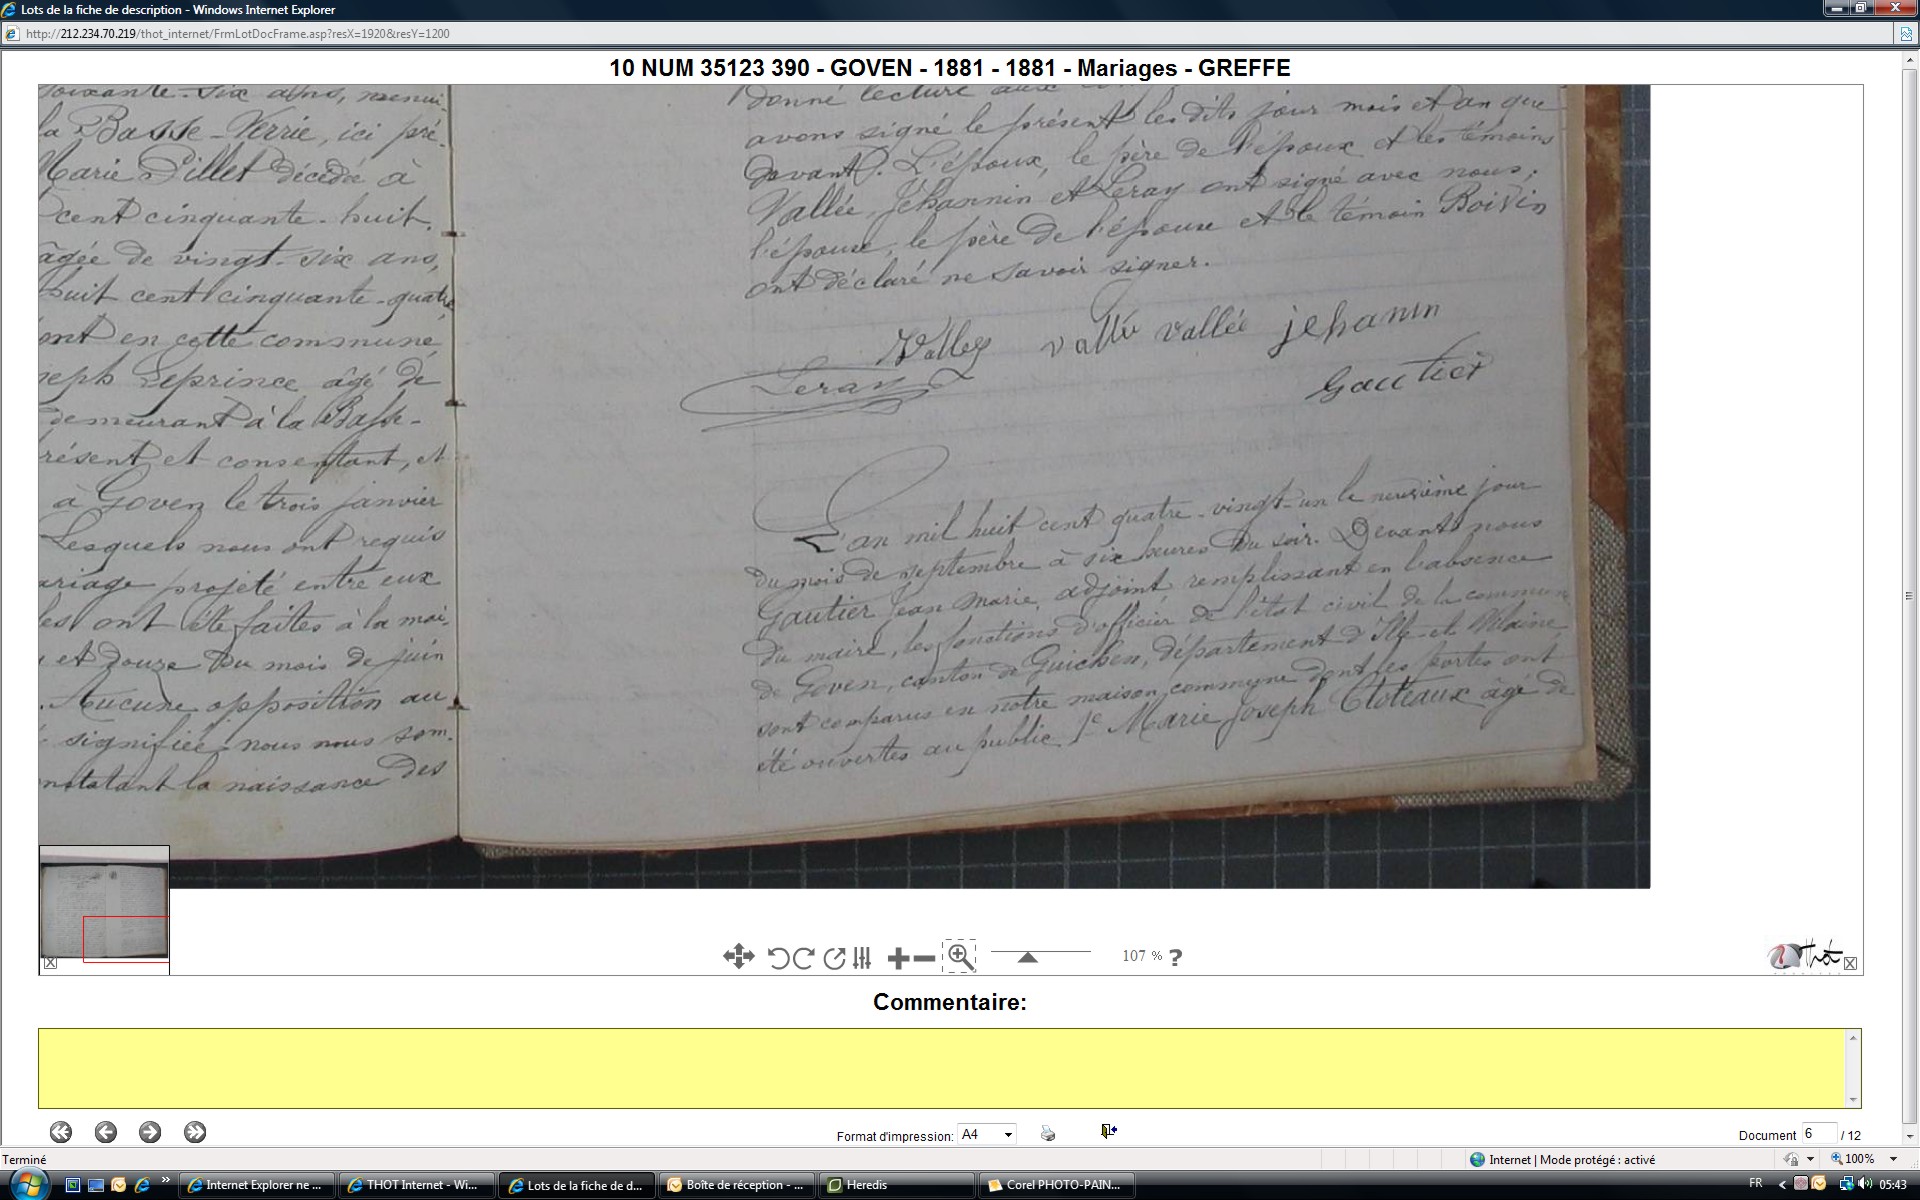 Lots de la fiche de description - Windows Internet Explorer
http://212.234.70.219/thot_internet/FrmLotDocFrame.asp?resX=1920&resY=1200
10 NUM 35123 390 - GOVEN - 1881 - 1881 - Mariages - GREFFE
soixante-six ans, menui-
la Basse-Verrie, ici pré-
Marie Pillet décédée à
cent cinquante-huit.
âgée de vingt-six ans,
huit cent cinquante-quatre
ont en cette commune
seph Leprince âgé de
demeurant à la Basse-
résent et consentant, et
à Goven le trois janvier
Lesquels nous ont requis
ariage projeté entre eux
les ont été faites à la mai-
et douze du mois de juin
. Aucune opposition au
signifiée, nous nous som-
nstatant la naissance des
donné lecture aux
avons signé le présent les dits jour mois et an que
devant. L'époux, le père de l'époux et les témoins
Vallée, Jéhannin et Leray ont signé avec nous;
l'épouse, le père de l'épouse et le témoin Boivin
ont déclaré ne savoir signer.
Valley vallé vallée jehanin
Leray Gautier
L'an mil huit cent quatre-vingt-un le neuvième jour
du mois de septembre à six heures du soir. Devant nous
Gautier Jean Marie, adjoint remplissant en l'absence
du maire, les fonctions d'officier de l'état civil de la commune
de Goven, canton de Guichen, département d'Ille-et-Vilaine
sont comparus en notre maison commune dont les portes ont
été ouvertes au public 1° Marie Joseph Cloteaux âgé de
107 % ?
Thot
Commentaire:
Format d'impression: A4
Document 6 / 12
Terminé
Internet | Mode protégé : activé
100%
Internet Explorer ne ...
THOT Internet - Wi...
Lots de la fiche de d...
Boîte de réception - ...
Heredis
Corel PHOTO-PAIN...
FR
05:43